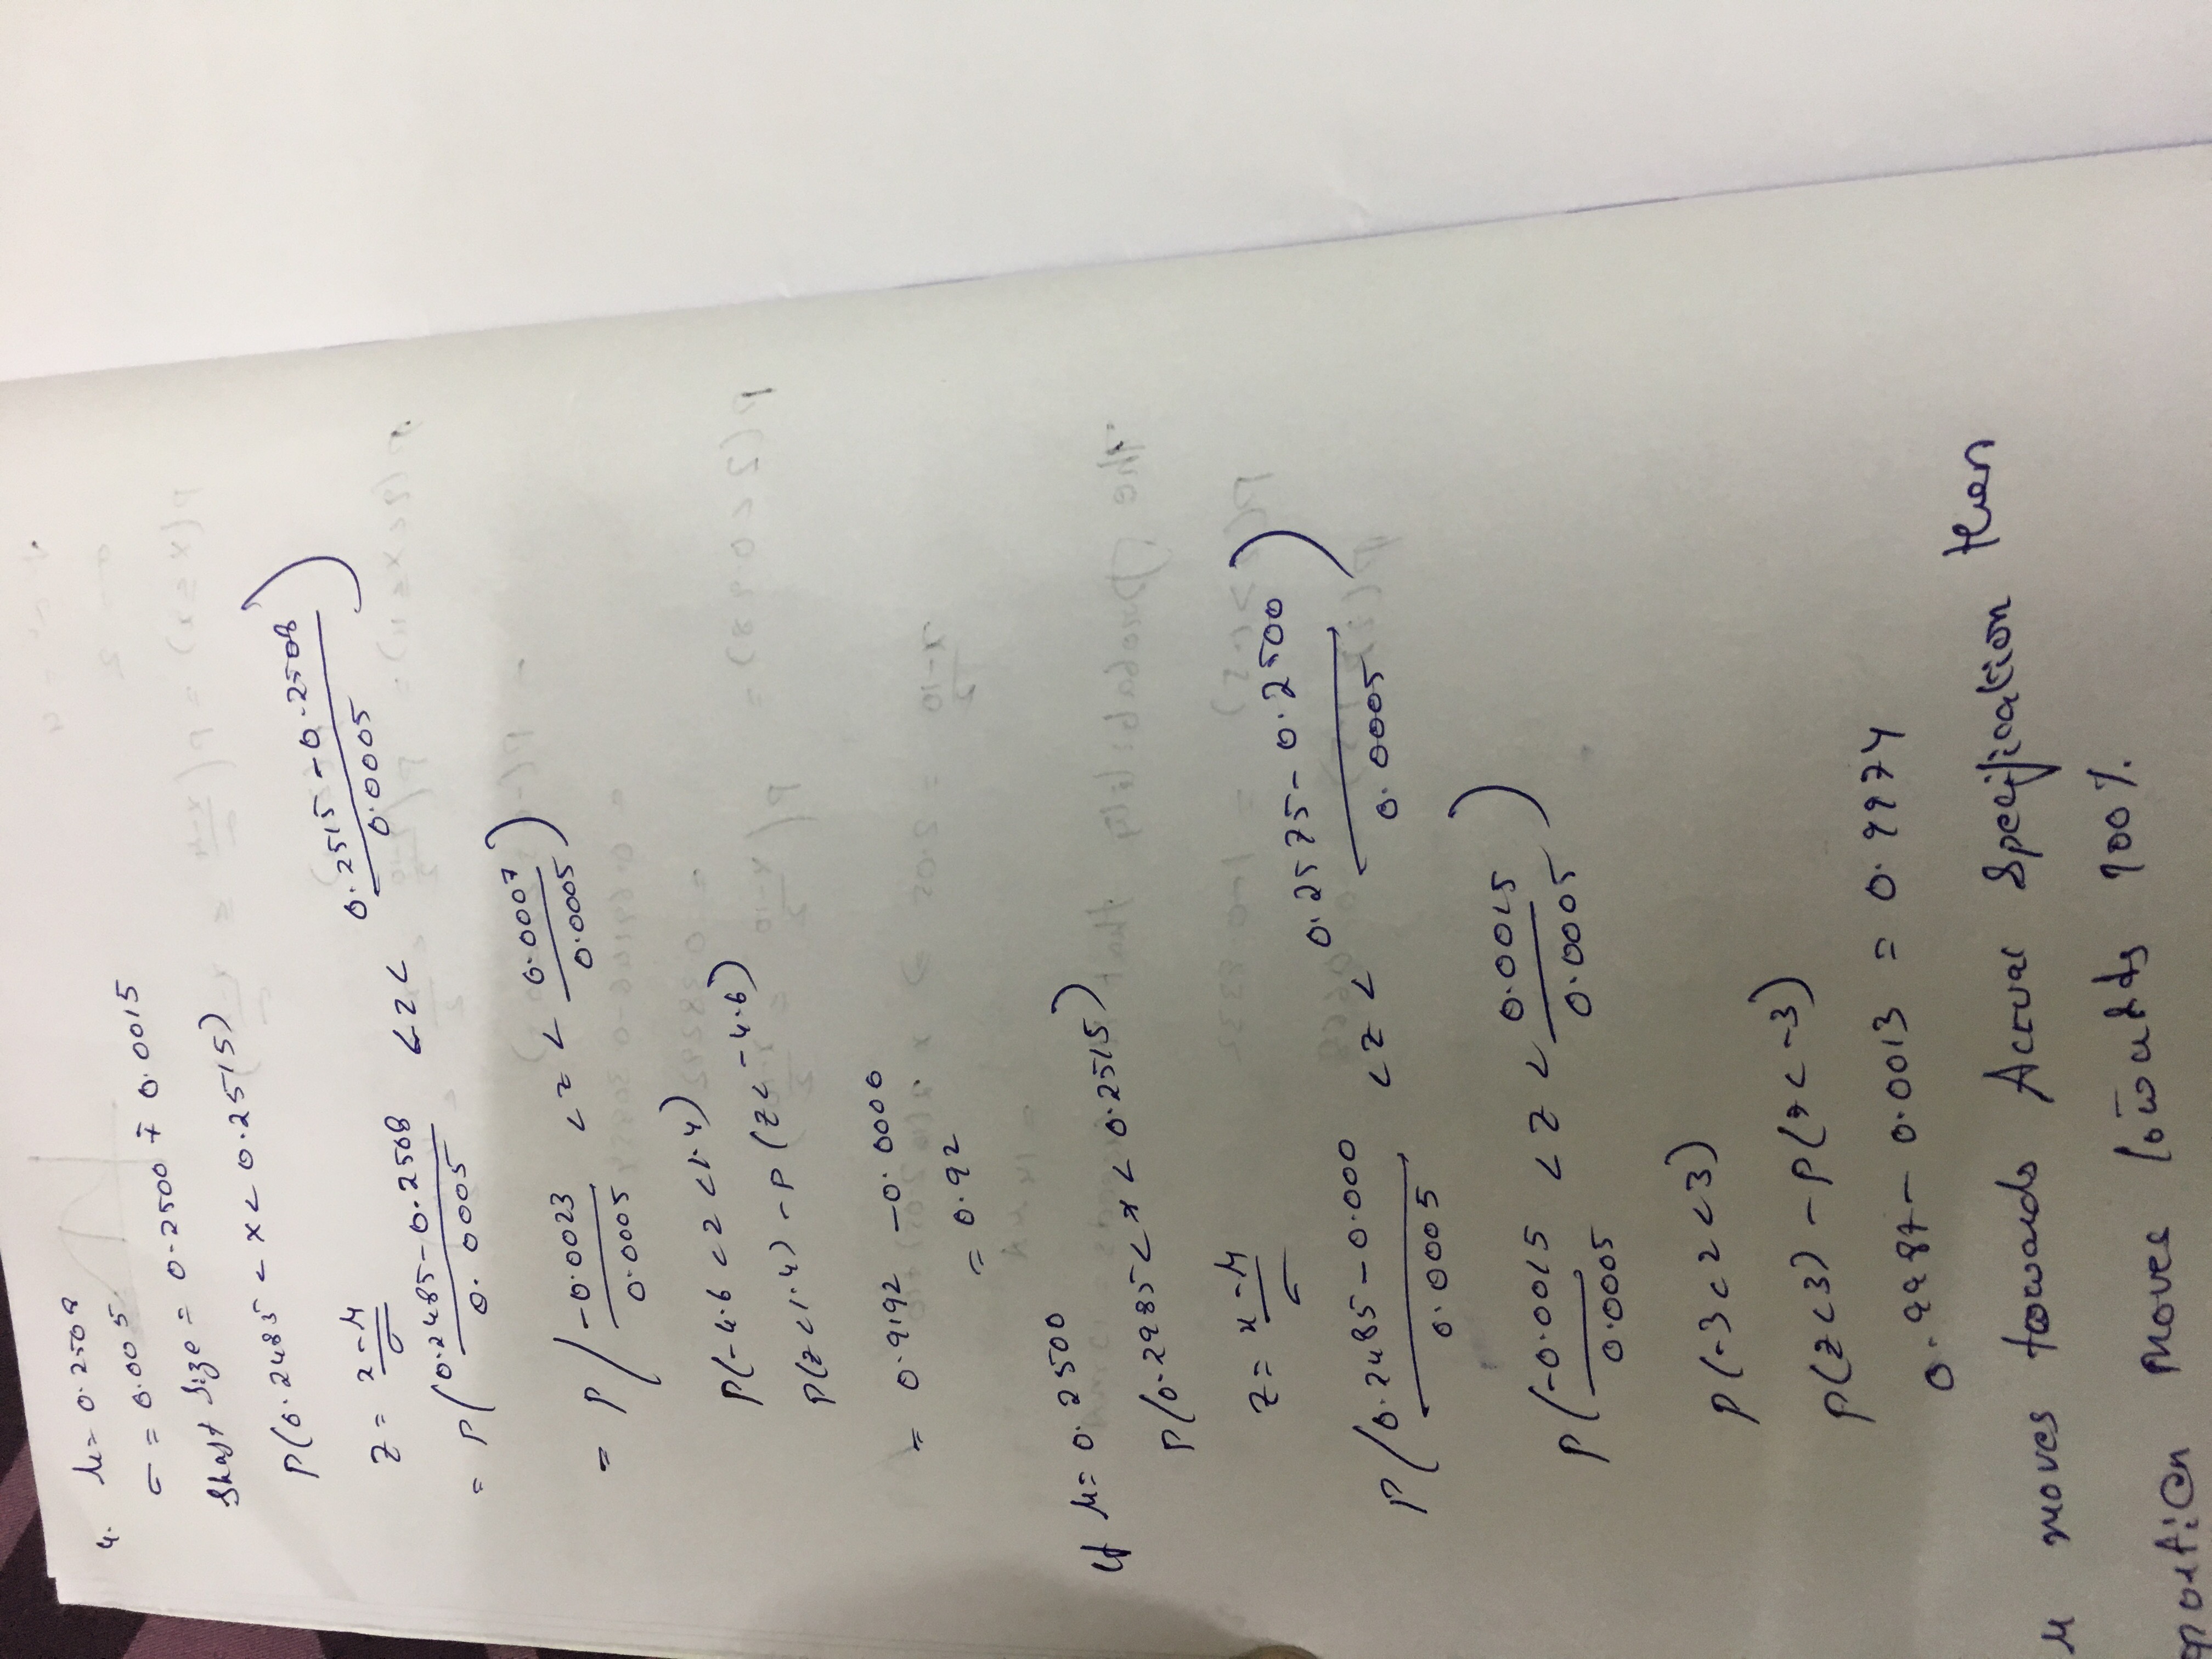 4. μ = 0.2508
σ = 0.005
Shaft Size = 0.2500 ∓ 0.0015
P(0.2485 < x < 0.2515)
z = x-μ / σ
= P(0.2485-0.2508 / 0.0005 < z < 0.2515-0.2508 / 0.0005)
= P(-0.0023 / 0.0005 < z < 0.0007 / 0.0005)
P(-4.6 < z < 1.4)
P(z < 1.4) - P(z < -4.6)
= 0.9192 - 0.0000
= 0.92
If μ = 0.2500
P(0.2985 < x < 0.2515)
z = x-μ / σ
P(0.2485-0.000 / 0.0005 < z < 0.2575-0.2500 / 0.0005)
P(-0.0015 / 0.0005 < z < 0.0015 / 0.0005)
P(-3 < z < 3)
P(z < 3) - P(z < -3)
0.9987 - 0.0013 = 0.9974
μ moves towards Actual Specification then
moves towards 100%.